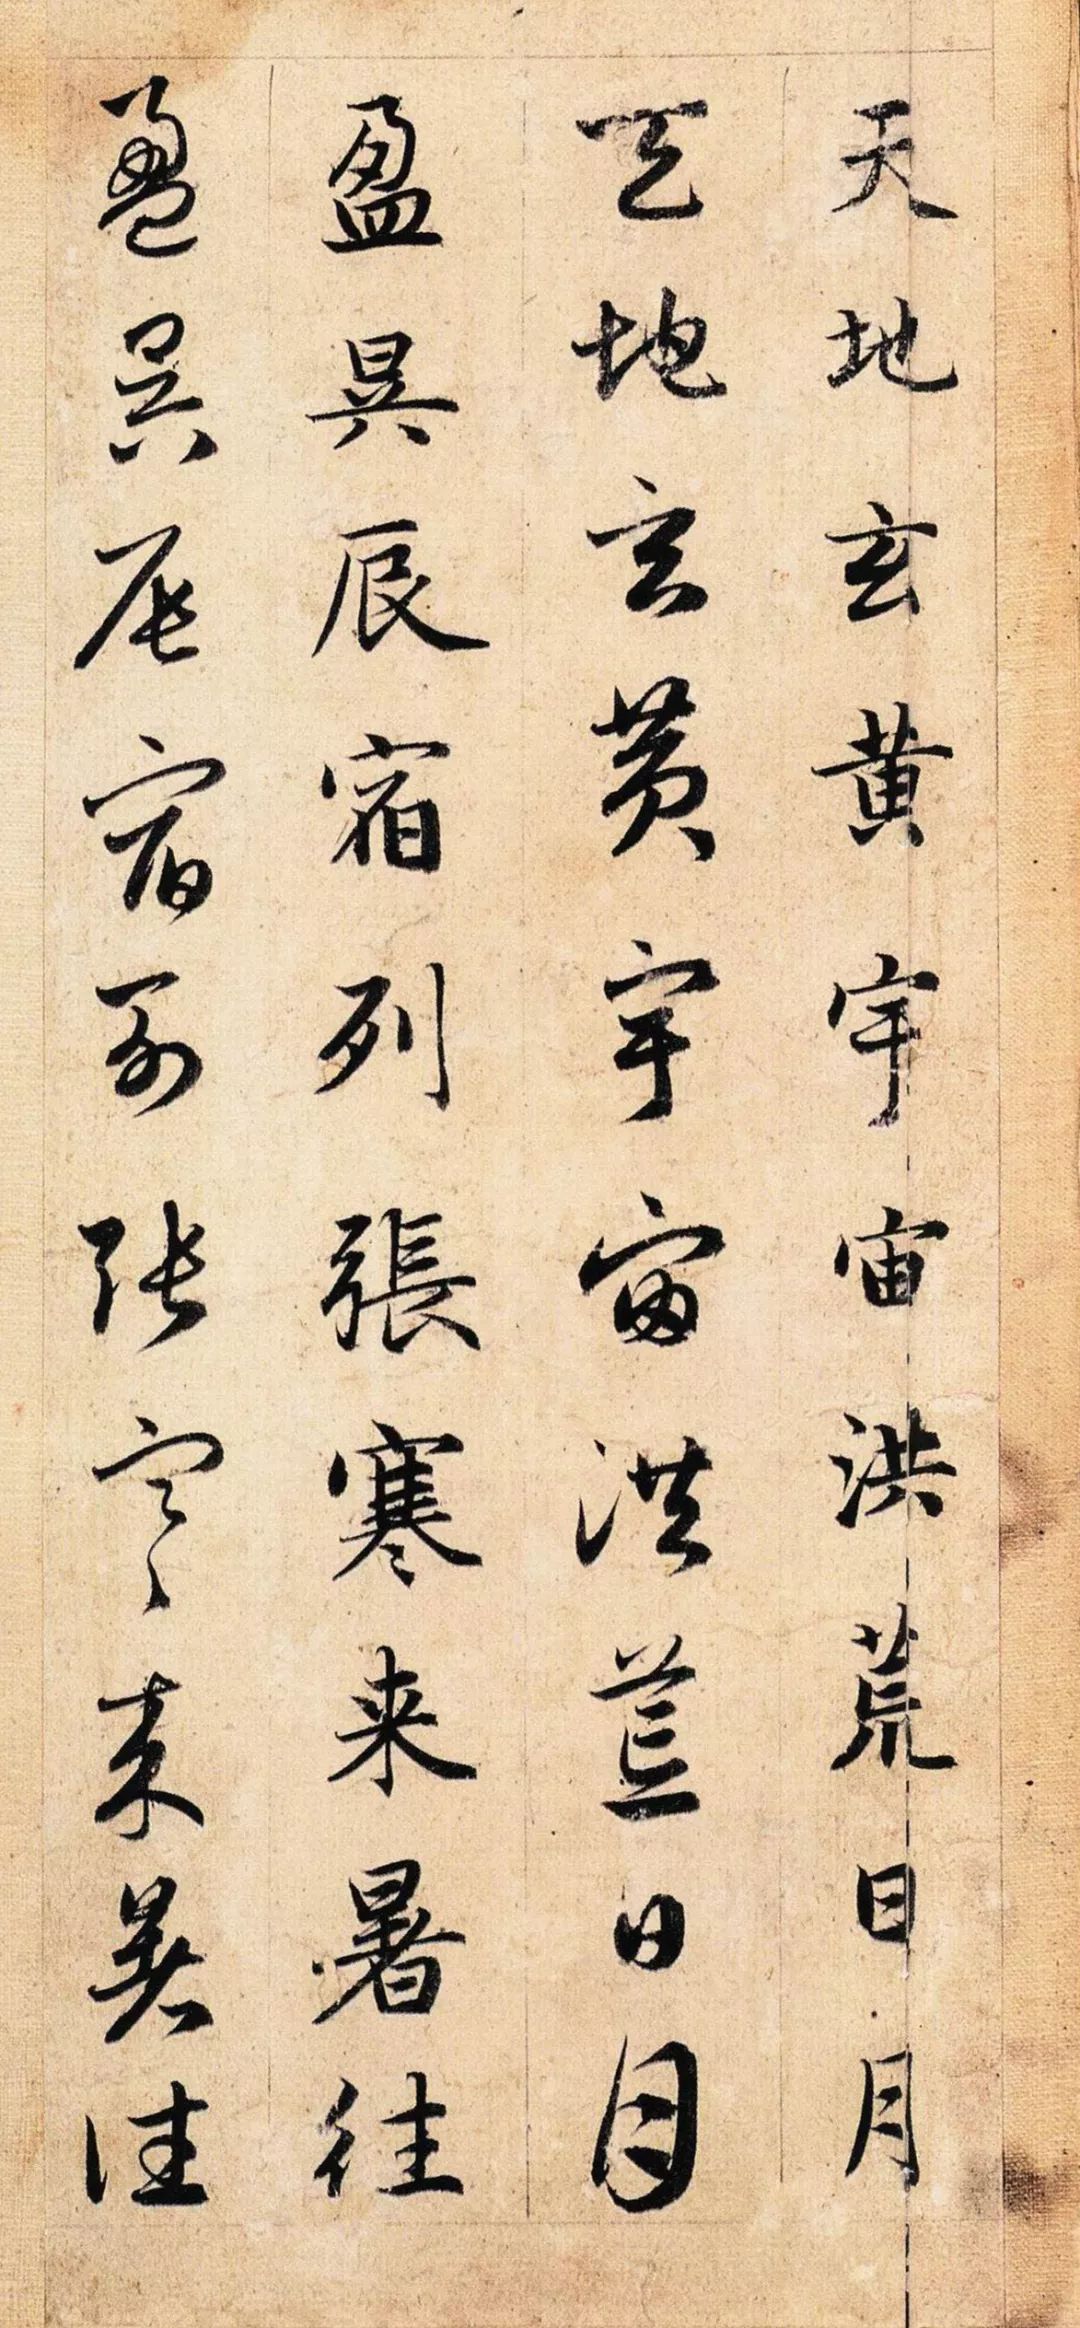 天地玄黄宇宙洪荒日月
天地玄黄宇宙洪荒日月
盈昃辰宿列張寒来暑往
盈昃辰宿列張寒来暑往